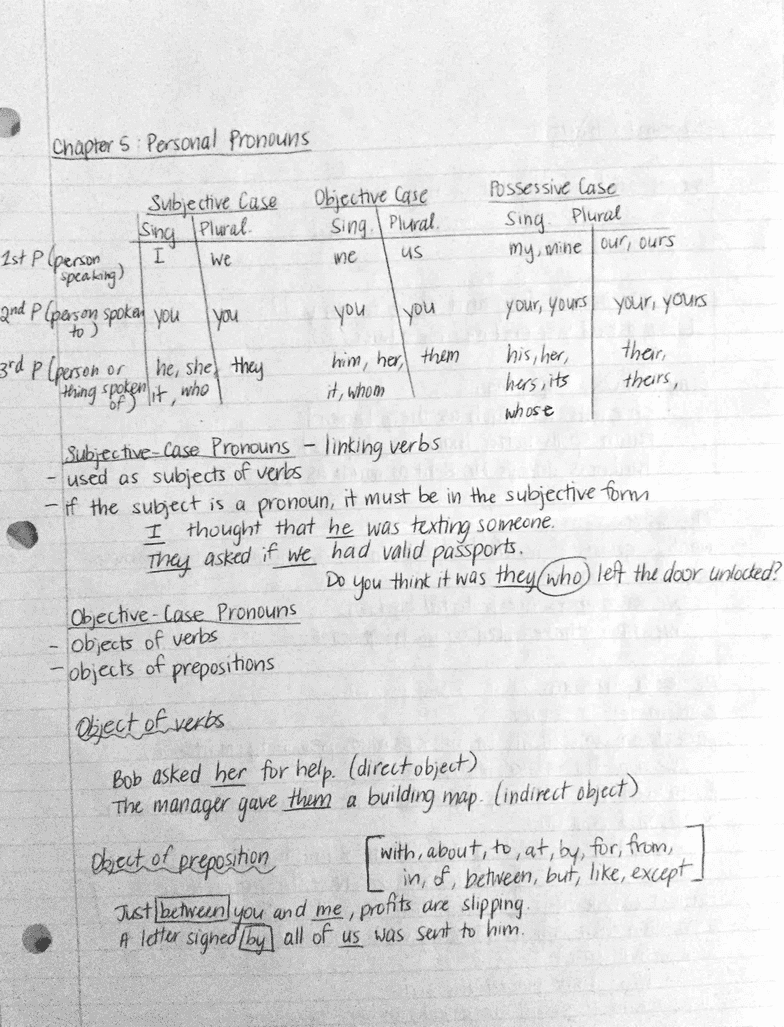 Chapter 5: Personal Pronouns
Subjective Case Objective Case Possessive Case
Sing Plural. Sing. Plural. Sing. Plural
1st P (person speaking) I we me us my, mine our, ours
2nd P (person spoken to) you you you you your, yours your, yours
3rd P (person or thing spoken of) he, she, it, who they him, her, it, whom them his, her, hers, its whose their, theirs,
Subjective-Case Pronouns - linking verbs
- used as subjects of verbs
- if the subject is a pronoun, it must be in the subjective form
I thought that he was texting someone.
They asked if we had valid passports.
Do you think it was they who left the door unlocked?
Objective-Case Pronouns
- objects of verbs
- objects of prepositions
Object of verbs
Bob asked her for help. (direct object)
The manager gave them a building map. (indirect object)
Object of preposition [with, about, to, at, by, for, from,
in, of, between, but, like, except]
Just between you and me, profits are slipping.
A letter signed by all of us was sent to him.